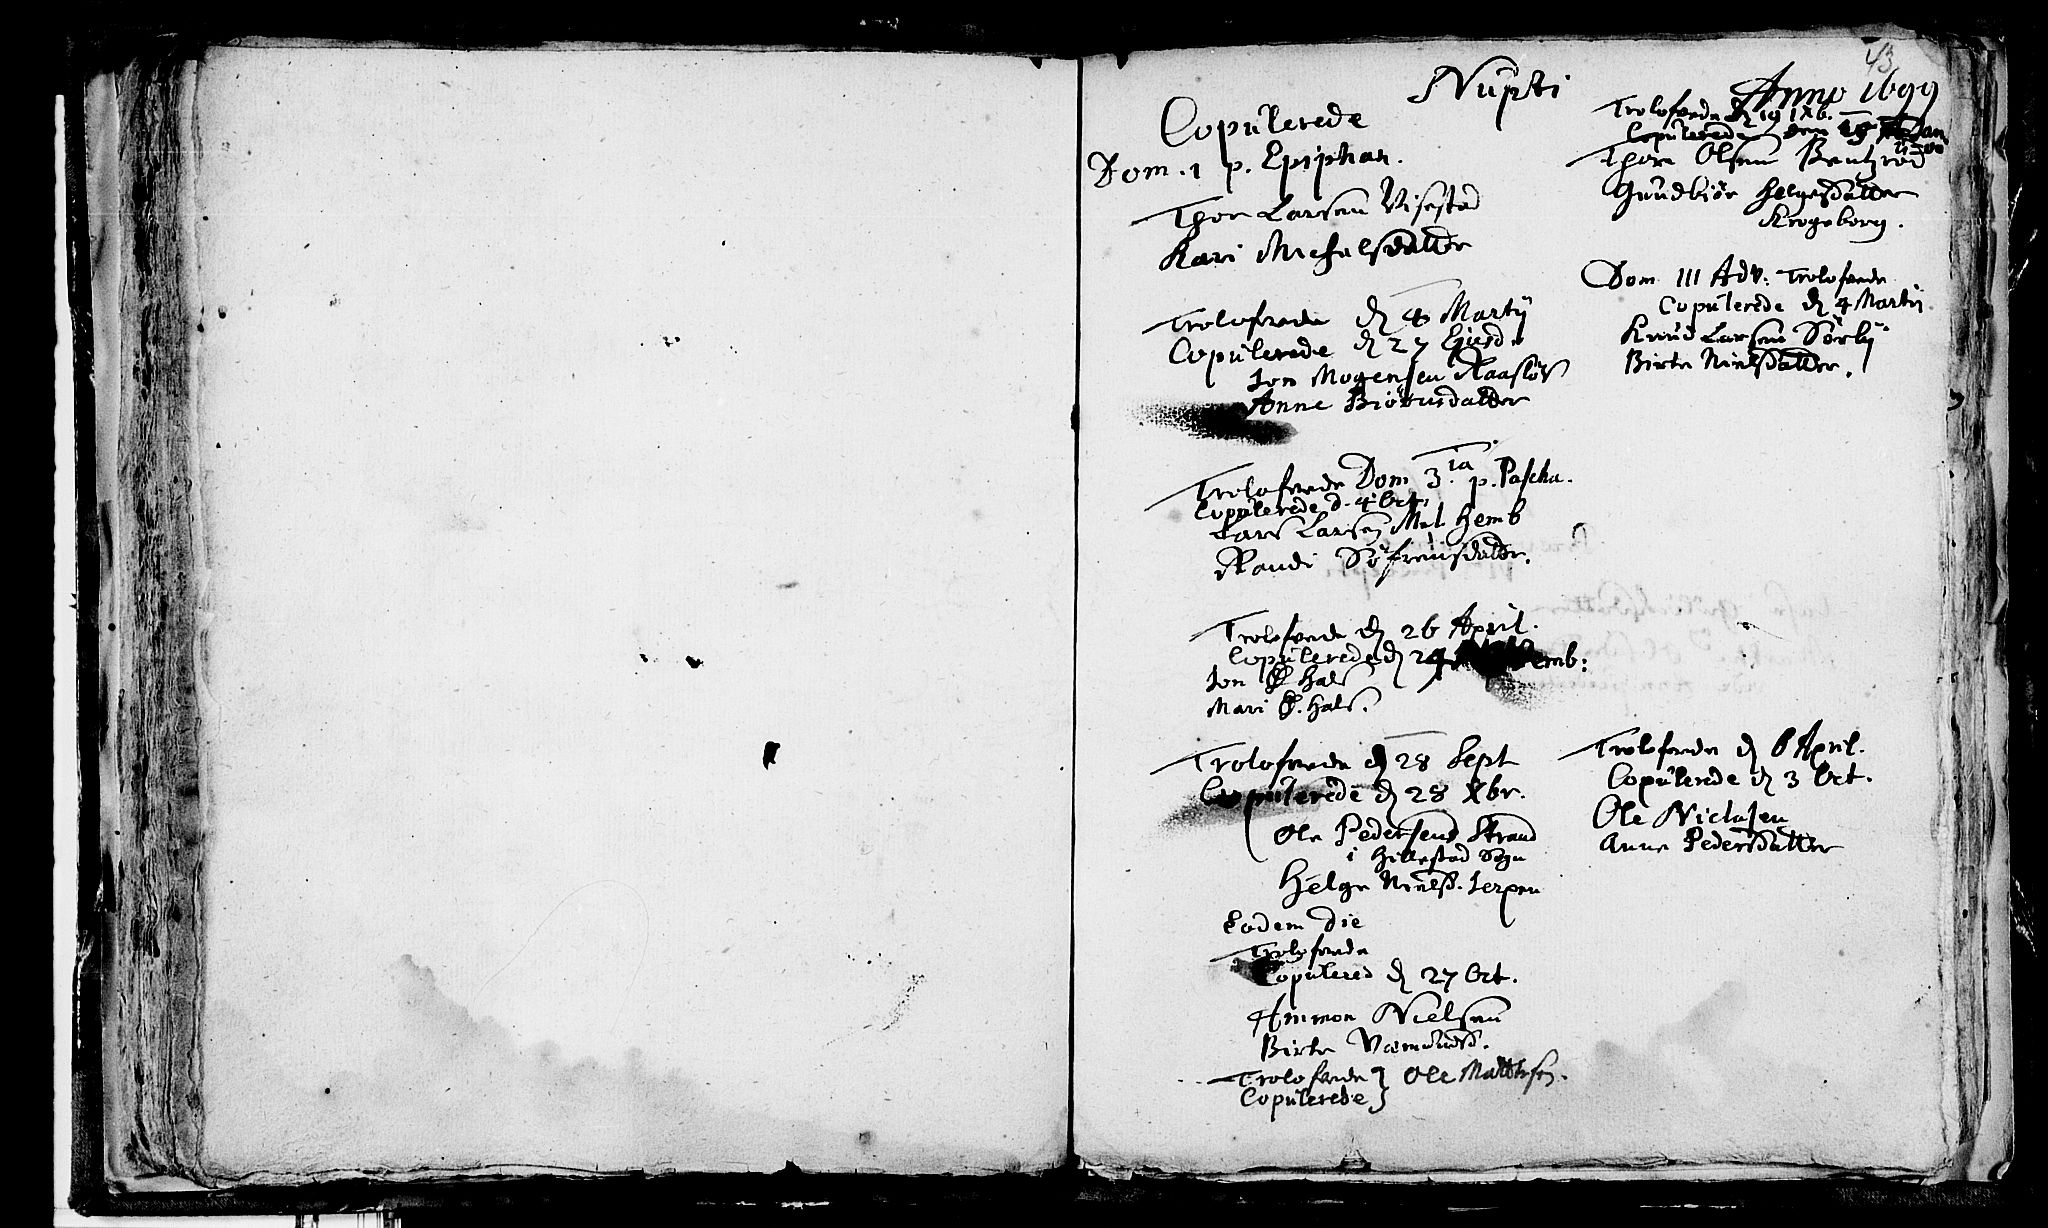 43
Nupti Anno 1699
Copulerede
Dom. 1 p. Epiphan.
Thor Larsen Visestad
Kari Michelsdatter
Trolofvede d 4 Martij
Copulerede d 27 Ejusd
Jon Mogensen Raasløs
Anne Biørnsdatter
Trolofvede Dom 3.tia p. Pascha.
Copulerede d. 4 Oct.
Lars Larsen Hemb
Randi Søfrensdatter.
Trolofvede d 26 April.
Copulerede d 24 emb:
Jon Hals
Mari Hals.
Trolofvede d 28 Sept
Copulerede d 28 Xbr.
Ole Pedersens Strand
i Hillestad Sogn
Helge Nielsd. Jerpen
Eodem Die
Trolofvede
Copulered d 27 Oct.
Ammon Nielsen
Birte Vemundsd.
Trolofvede } Ole Mattesen.
Copulerede }
Trolofvede d 19 Xb.
Copulerede den Jan
1700
Thore Olsen Bentzrød
Gundbiør Helgesdatter
Krogeborg.
Dom III Adv: Trolofvede
Copulerede d 4 Martij
Knud Larsen Sørby
Birte Nielsdatter.
Trolofvede d 6 April.
Copulerede d 3 Oct.
Ole Niclasen
Anne Pedersdatter